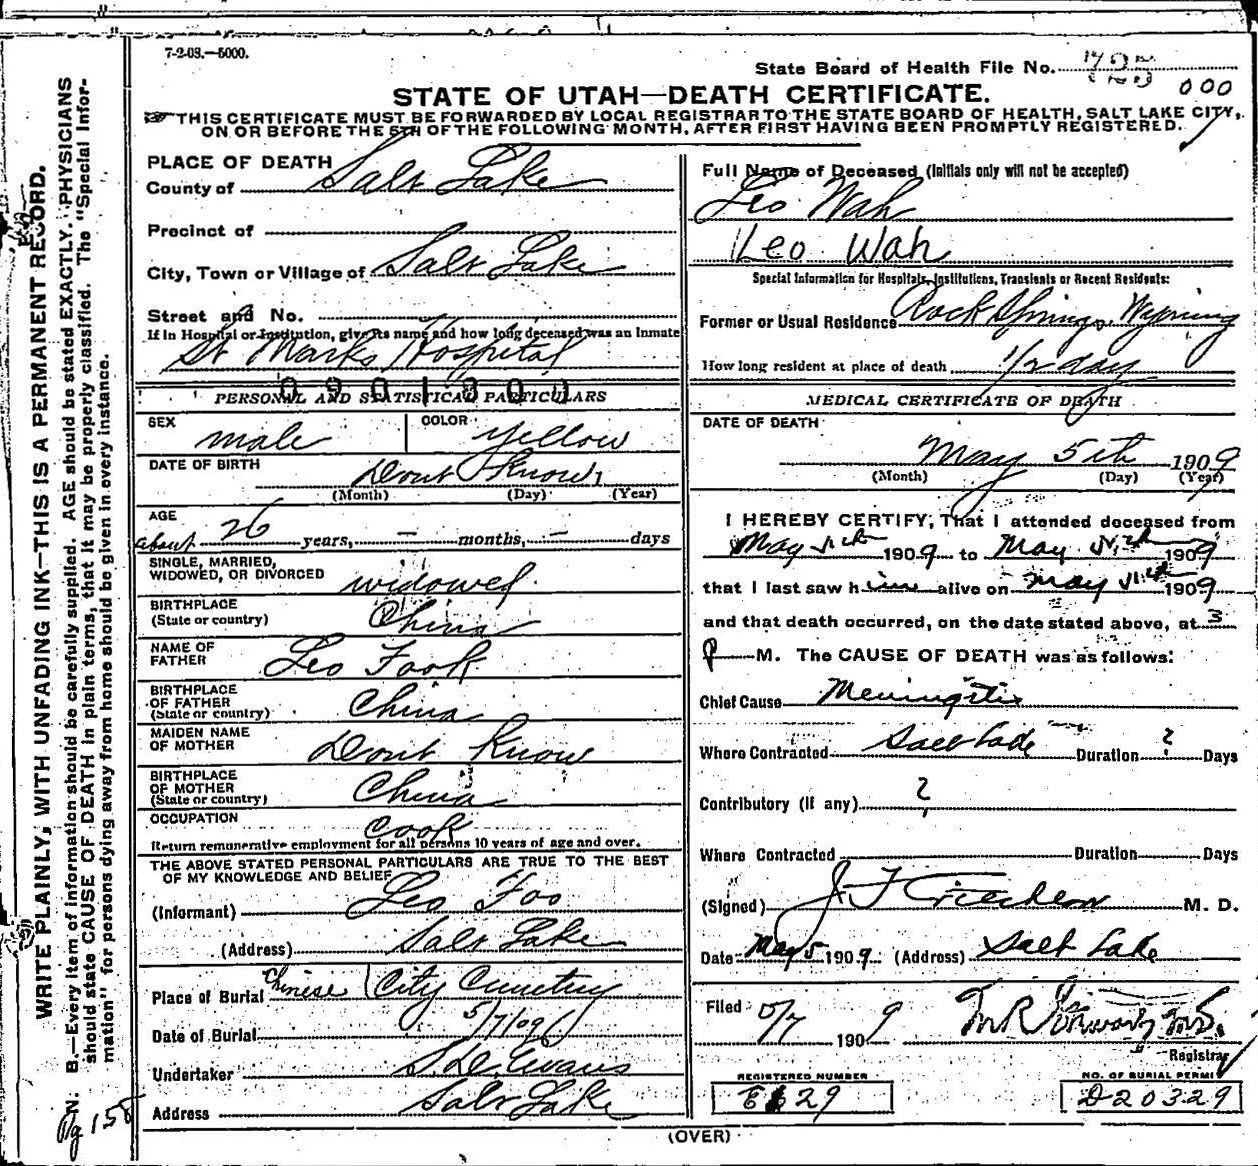 7-2-08.—5000.
State Board of Health File No.
000
STATE OF UTAH—DEATH CERTIFICATE.
THIS CERTIFICATE MUST BE FORWARDED BY LOCAL REGISTRAR TO THE STATE BOARD OF HEALTH, SALT LAKE CITY,
ON OR BEFORE THE 5TH OF THE FOLLOWING MONTH, AFTER FIRST HAVING BEEN PROMPTLY REGISTERED.
WRITE PLAINLY, WITH UNFADING INK—THIS IS A PERMANENT RECORD.
N. B.—Every item of information should be carefully supplied. AGE should be stated EXACTLY. PHYSICIANS
should state CAUSE OF DEATH in plain terms, that it may be properly classified. The "Special Infor-
mation" for persons dying away from home should be given in every instance.
Pg 155
PLACE OF DEATH
County of Salt Lake
Precinct of
City, Town or Village of Salt Lake
Street and No.
If in Hospital or Institution, give its name and how long deceased was an Inmate
St Marks Hospital
PERSONAL AND STATISTICAL PARTICULARS
SEX male
COLOR yellow
DATE OF BIRTH Dont Know
(Month) (Day) (Year)
AGE
about 26 years, — months, — days
SINGLE, MARRIED,
WIDOWED, OR DIVORCED widowed
BIRTHPLACE
(State or country) China
NAME OF
FATHER Leo Fook
BIRTHPLACE
OF FATHER
(State or country) China
MAIDEN NAME
OF MOTHER Dont Know
BIRTHPLACE
OF MOTHER
(State or country) China
OCCUPATION
Cook
Return remunerative employment for all persons 10 years of age and over.
THE ABOVE STATED PERSONAL PARTICULARS ARE TRUE TO THE BEST
OF MY KNOWLEDGE AND BELIEF
(Informant) Leo Foo
(Address) Salt Lake
Place of Burial Chinese City Cemetery
Date of Burial 5/7/09
Undertaker S. D. Evans
Address Salt Lake
Full Name of Deceased (Initials only will not be accepted)
Leo Wah
Leo Wah
Special Information for Hospitals, Institutions, Transients or Recent Residents:
Former or Usual Residence Rock Springs, Wyoming
How long resident at place of death 1/2 day
MEDICAL CERTIFICATE OF DEATH
DATE OF DEATH
May 5th 1909
(Month) (Day) (Year)
I HEREBY CERTIFY, That I attended deceased from
May 5th 1909 to May 5th 1909
that I last saw him alive on May 5th 1909
and that death occurred, on the date stated above, at 3
P M. The CAUSE OF DEATH was as follows:
Chief Cause Meningitis
Where Contracted Salt Lake Duration ? Days
Contributory (if any) ?
Where Contracted Duration Days
(Signed) J. F. Critchlow M. D.
Date May 5 1909 (Address) Salt Lake
Filed 5/7 1909
Registrar
REGISTERED NUMBER
E 629
NO. OF BURIAL PERMIT
D 20329
(OVER)